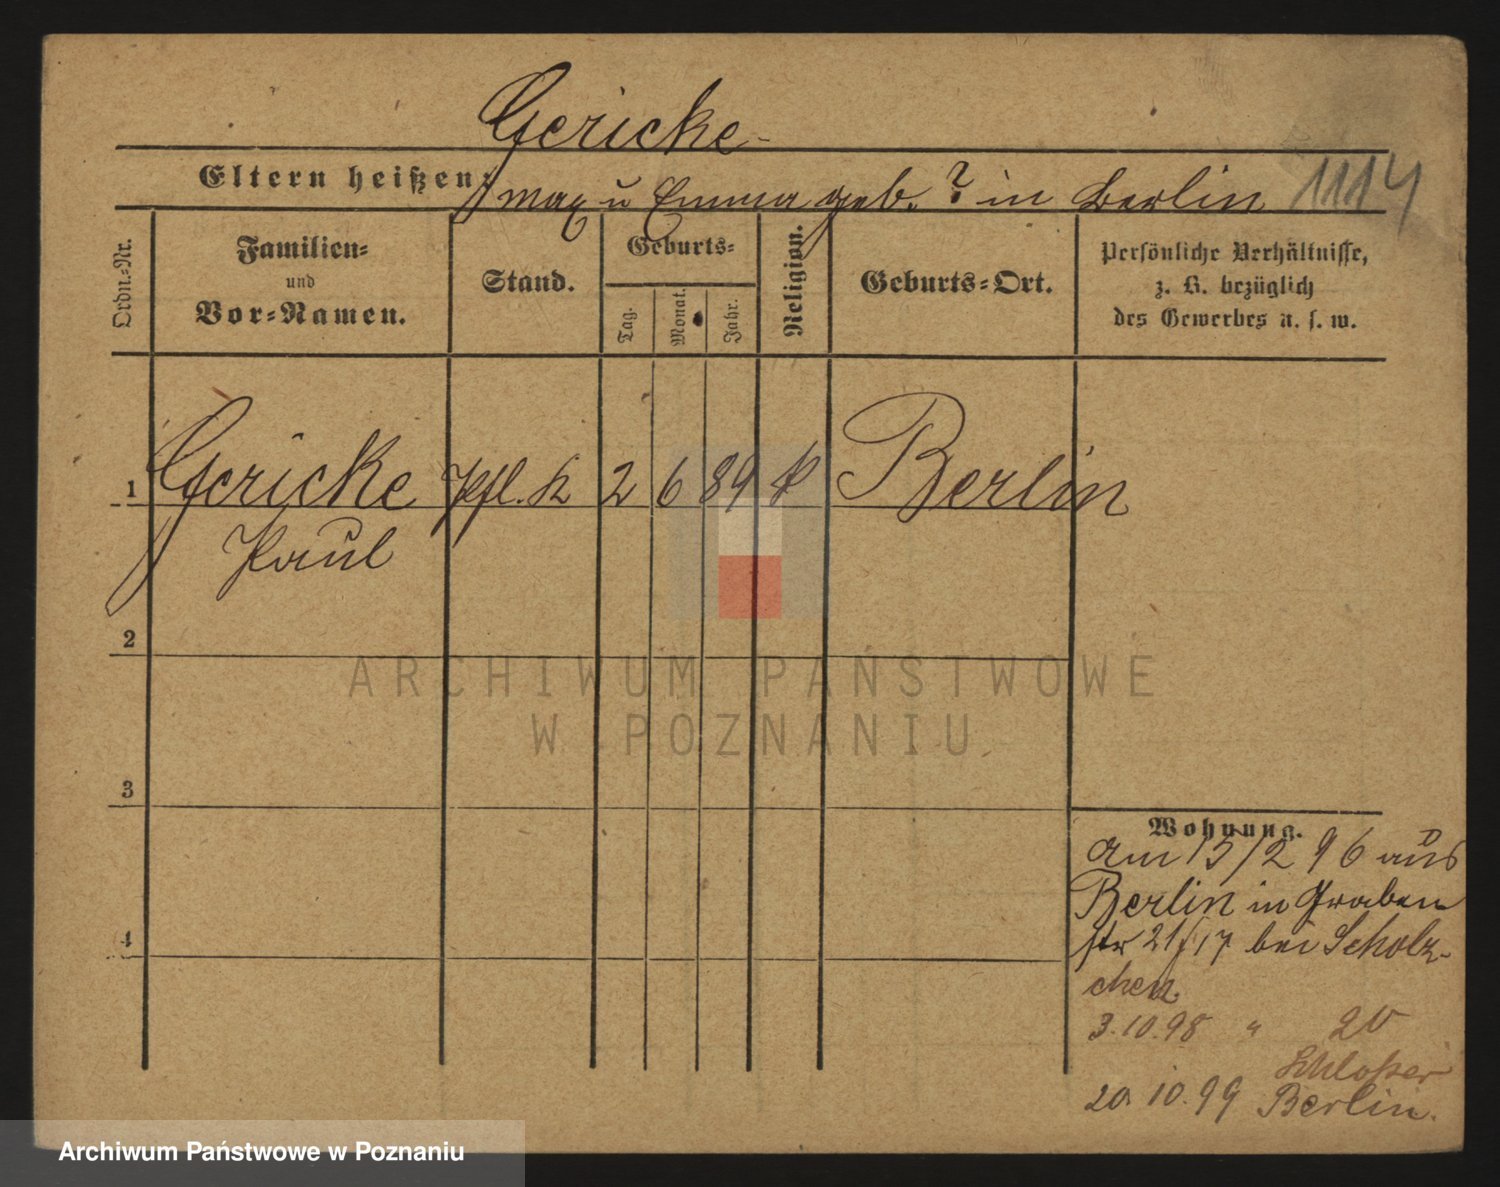 Gericke
Eltern heißen: Max u Emma geb. ? in Berlin 1114
Ordn.-Nr.
Familien-
und
Vor-Namen.
Stand.
Geburts-
Tag.
Monat.
Jahr.
Religion.
Geburts-Ort.
Persönliche Verhältnisse,
z. B. bezüglich
des Gewerbes u. s. w.
1 Gericke Pfl. K 2 6 89 k Berlin
Paul
2
ARCHIWUM PAŃSTWOWE
W POZNANIU
3
Wohnung.
am 15/2 96 aus
Berlin in Graben
str 21/17 bei Scholz-
chen
4
3.10.98 " 20
Schlosser
20.10.99 Berlin.
Archiwum Państwowe w Poznaniu